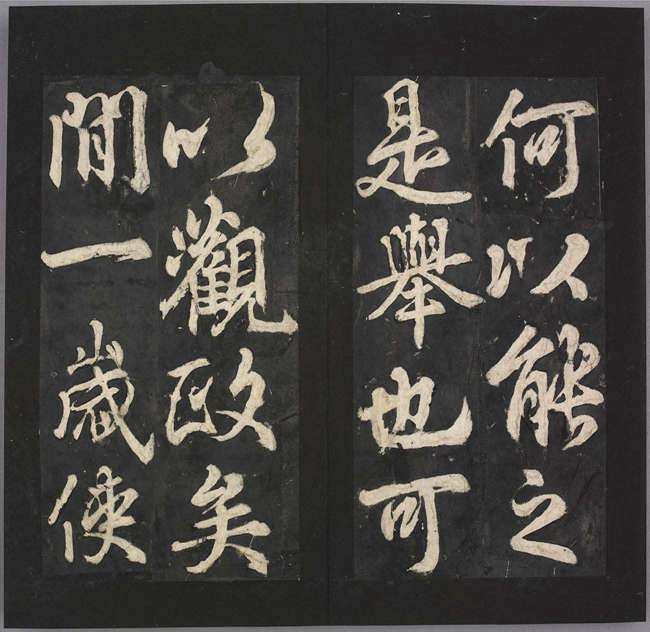 何以能之
是舉也可
以觀政矣
間一歲使